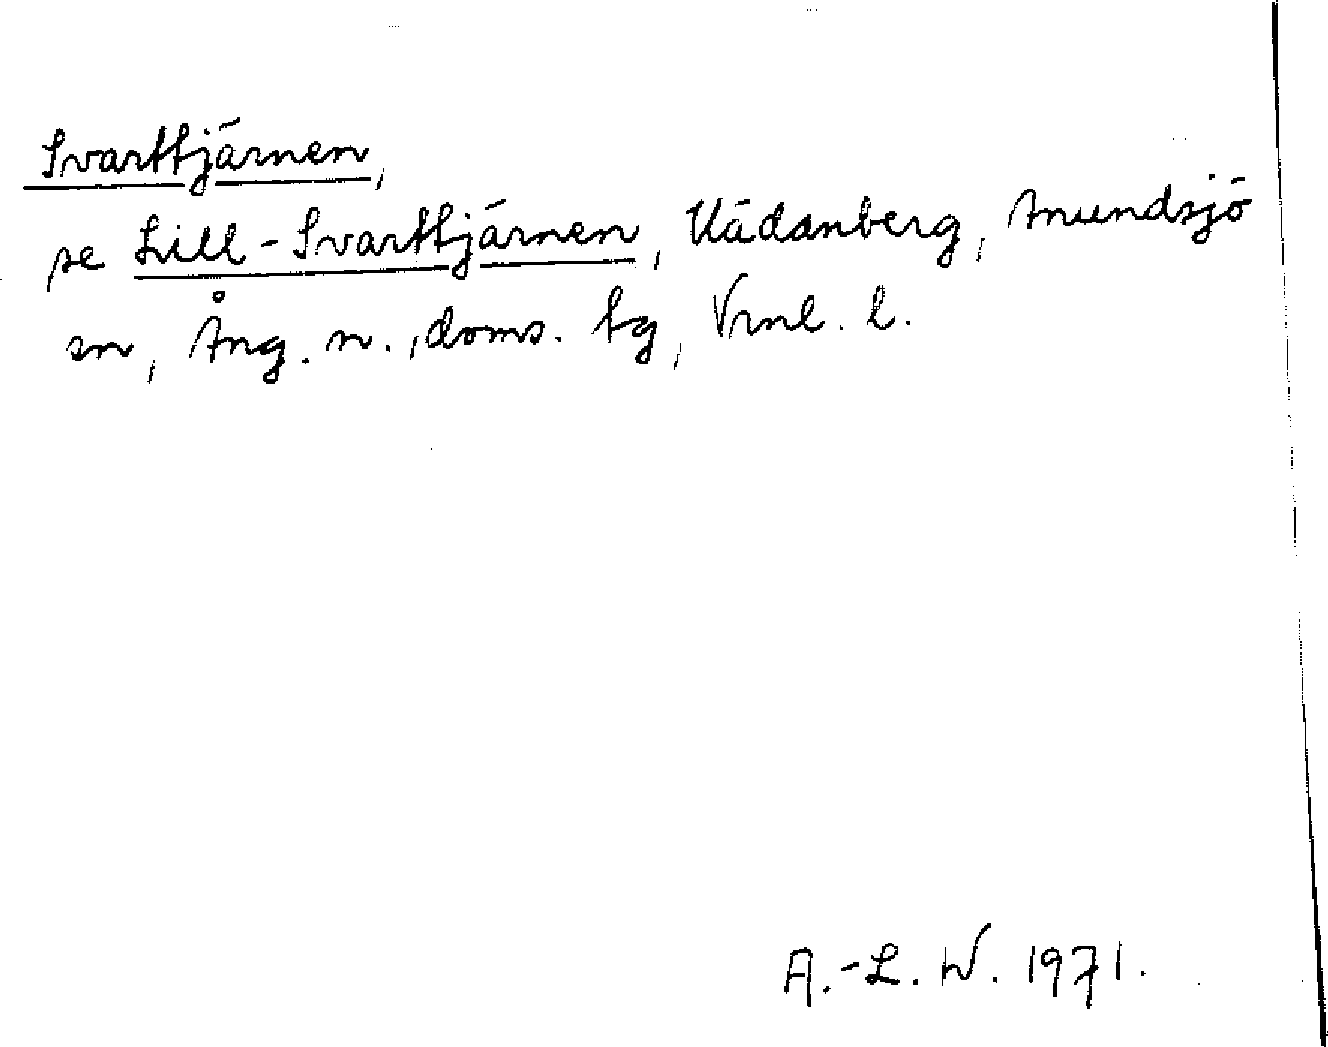 Svarttjärnen,
se Lill-Svarttjärnen, Vädanberg, Anundsjö
sn, Ång. n., doms. tg, Vrnl. l.
A.-L. W. 1971.